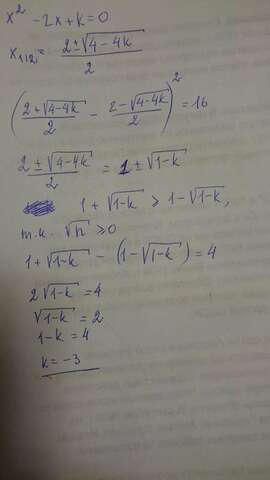 x² - 2x + k = 0
x₁,₂ = (2 ± √(4 - 4k))/2
((2 + √(4-4k))/2 - (2 - √(4-4k))/2)² = 16
(2 ± √(4-4k))/2 = 1 ± √(1-k)
1 + √(1-k) ⩾ 1 - √(1-k),
т.к. √n ⩾ 0
1 + √(1-k) - (1 - √(1-k)) = 4
2√(1-k) = 4
√(1-k) = 2
1 - k = 4
k = -3